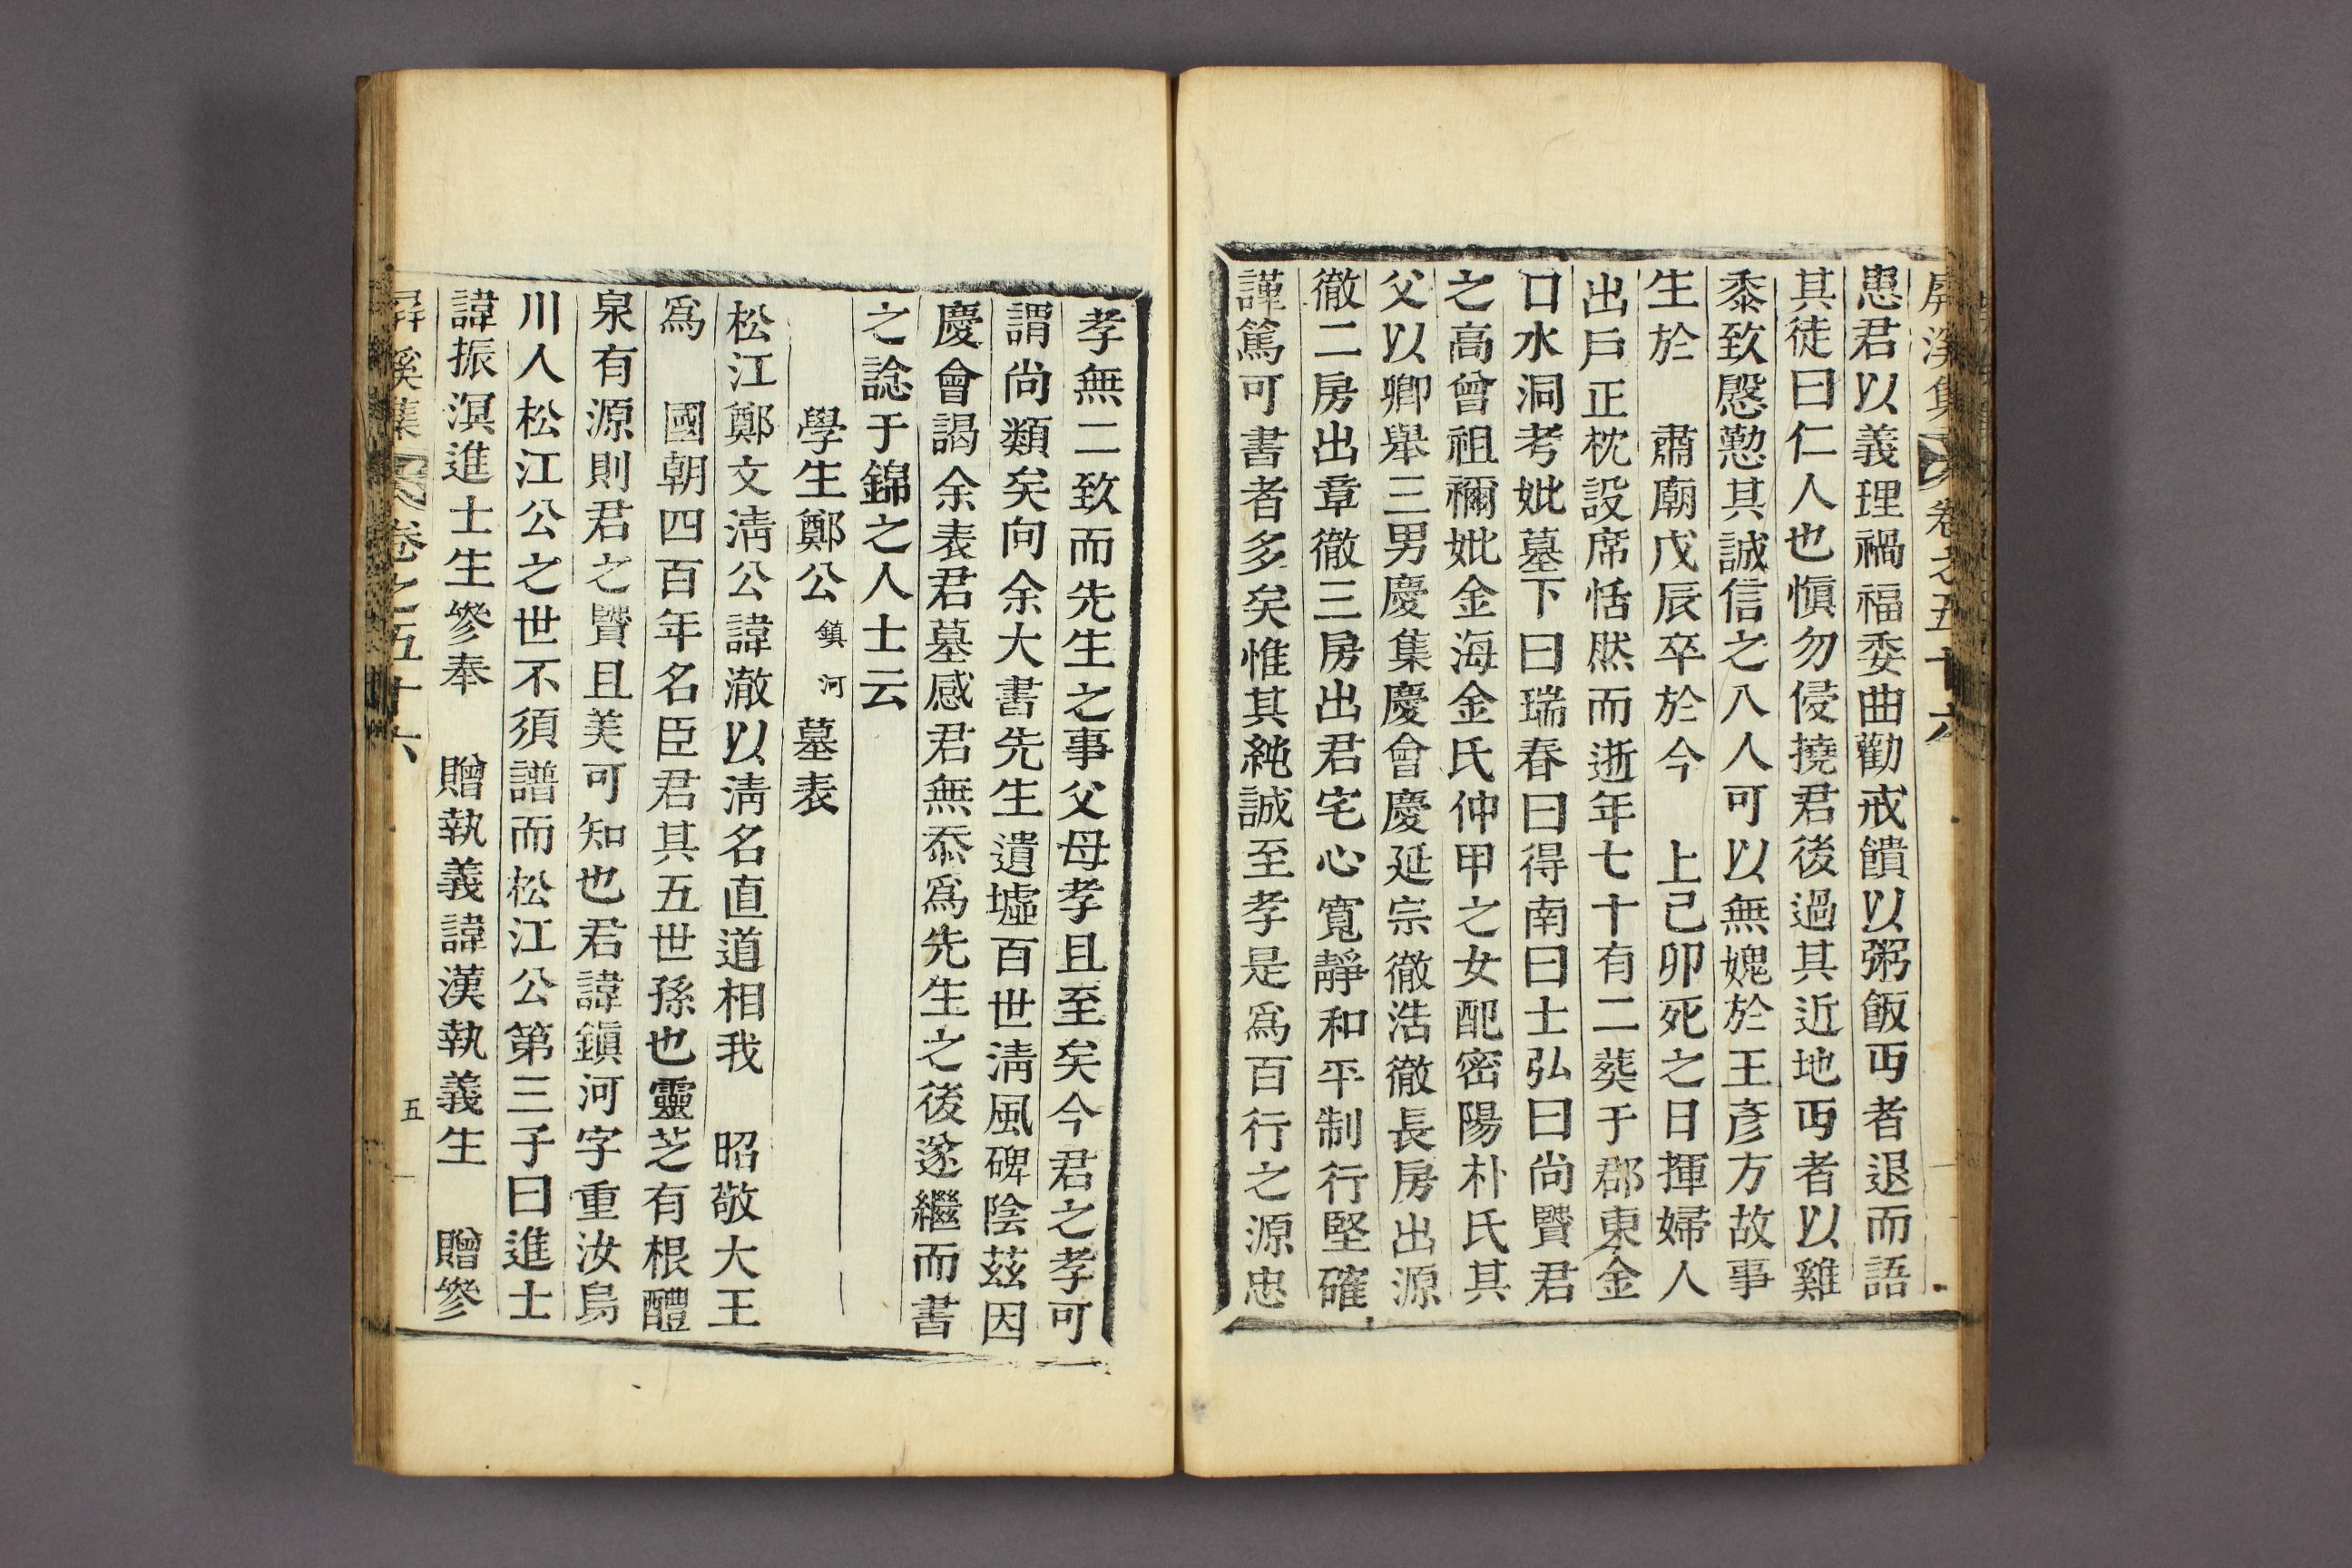 屛溪集 卷之五十六
患君以義理禍福委曲勸戒饋以粥飯丏者退而語
其徒曰仁人也愼勿侵撓君後過其近地丏者以雞
黍致慇懃其誠信之入人可以無媿於王彦方故事
生於 肅廟戊辰卒於今 上己卯死之日揮婦人
出戶正枕設席恬然而逝年七十有二葬于郡東金
口水洞考妣墓下曰瑞春曰得南曰士弘曰尙賢君
之高曾祖禰妣金海金氏仲甲之女配密陽朴氏其
父以卿舉三男慶集慶會慶延宗徹浩徹長房出源
徹二房出章徹三房出君宅心寬靜和平制行堅確
謹篤可書者多矣惟其純誠至孝是爲百行之源忠
孝無二致而先生之事父母孝且至矣今君之孝可
謂尙類矣向余大書先生遺墟百世淸風碑陰茲因
慶會謁余表君墓感君無忝爲先生之後遂繼而書
之諗于錦之人士云
學生鄭公鎮河墓表
松江鄭文淸公諱澈以淸名直道相我 昭敬大王
爲 國朝四百年名臣君其五世孫也靈芝有根醴
泉有源則君之賢且美可知也君諱鎭河字重汝烏
川人松江公之世不須譜而松江公第三子曰進士
諱振溟進士生參奉 贈執義諱漢執義生 贈參
屛溪集 卷之五十六 五